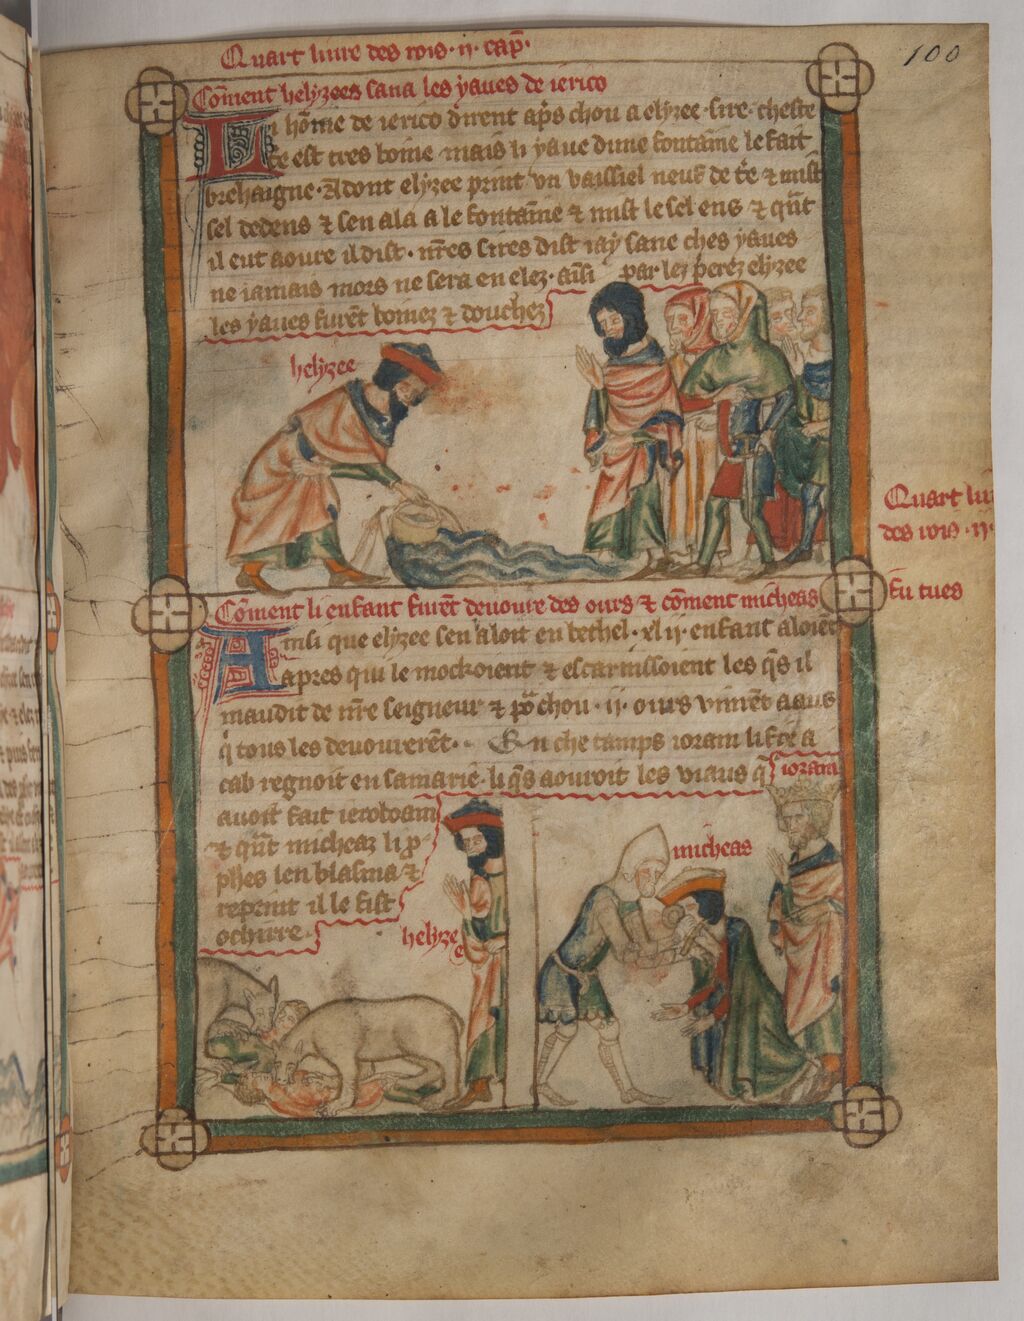 Quart liure des rois · ij · cap̃ ·
100
Cõment helyzees sana les yaues de ierico
Li hõme de ierico dirent ap̃s chou a elyzee · sire · cheste
t̃e est tres boine · mais li yaue dune fontaine le fait
brehaigne · Adont elyzee print vn vaissiel neuf de t̃e ⁊ mist
sel dedens ⁊ sen ala a le fontaĩne ⁊ mist le sel ens ⁊ qñt
il eut aoure il dist · nr̃es sires dist iay sane ches yaues
ne iamais mors ne sera en elez · aĩsi par lez perez elyzee
les yaues furẽt boinez ⁊ douchez
helyzee
Quart liu
des rois · ij ·
Cõment li enfant furẽt deuoure des ours ⁊ cõment micheas
fu tues
Ainsi que elyzee sen aloit en bethel · xl ij · enfant aloiẽt
apres qui le mockoient ⁊ escarnissoient les q̃s il
maudit de nr̃e seigneur ⁊ por chou · ij · ours vinrẽt aaus
q̃ tous les deuourerẽt · En che tamps ioram li fiex a
cab regnoit en samarie · li q̃s aouroit les viaus q̃
ioram
auoit fait ieroboam
⁊ qũt micheaz li p̃
phes len blasma ⁊
reprint il le fist
ochirre ·
micheas
helyzee